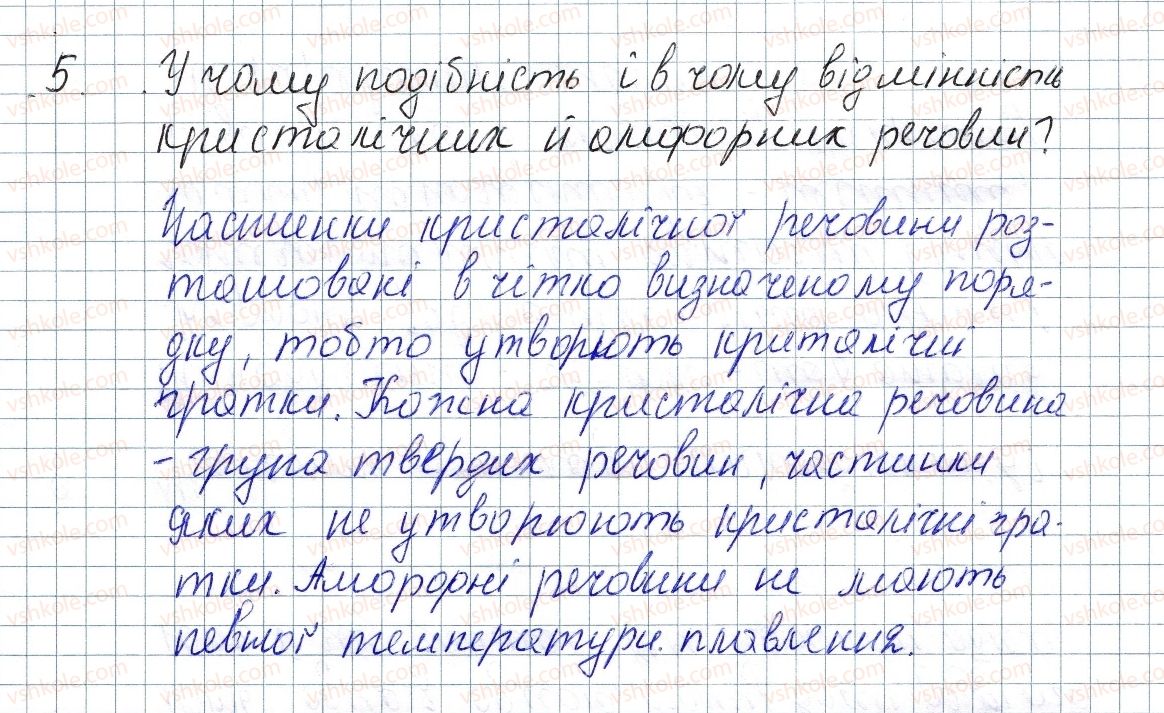 5. У чому подібність і в чому відмінність
кристалічних й аморфних речовин?
Частинки кристалічної речовини роз-
ташовані в чітко визначеному поря-
дку, тобто утворюють криталічні
гратки. Кожна кристалічна речовина
- група твердих речовин, частинки
яких не утворюють кристалічні гра-
тки. Аморфні речовини не мають
певної температури плавлення.